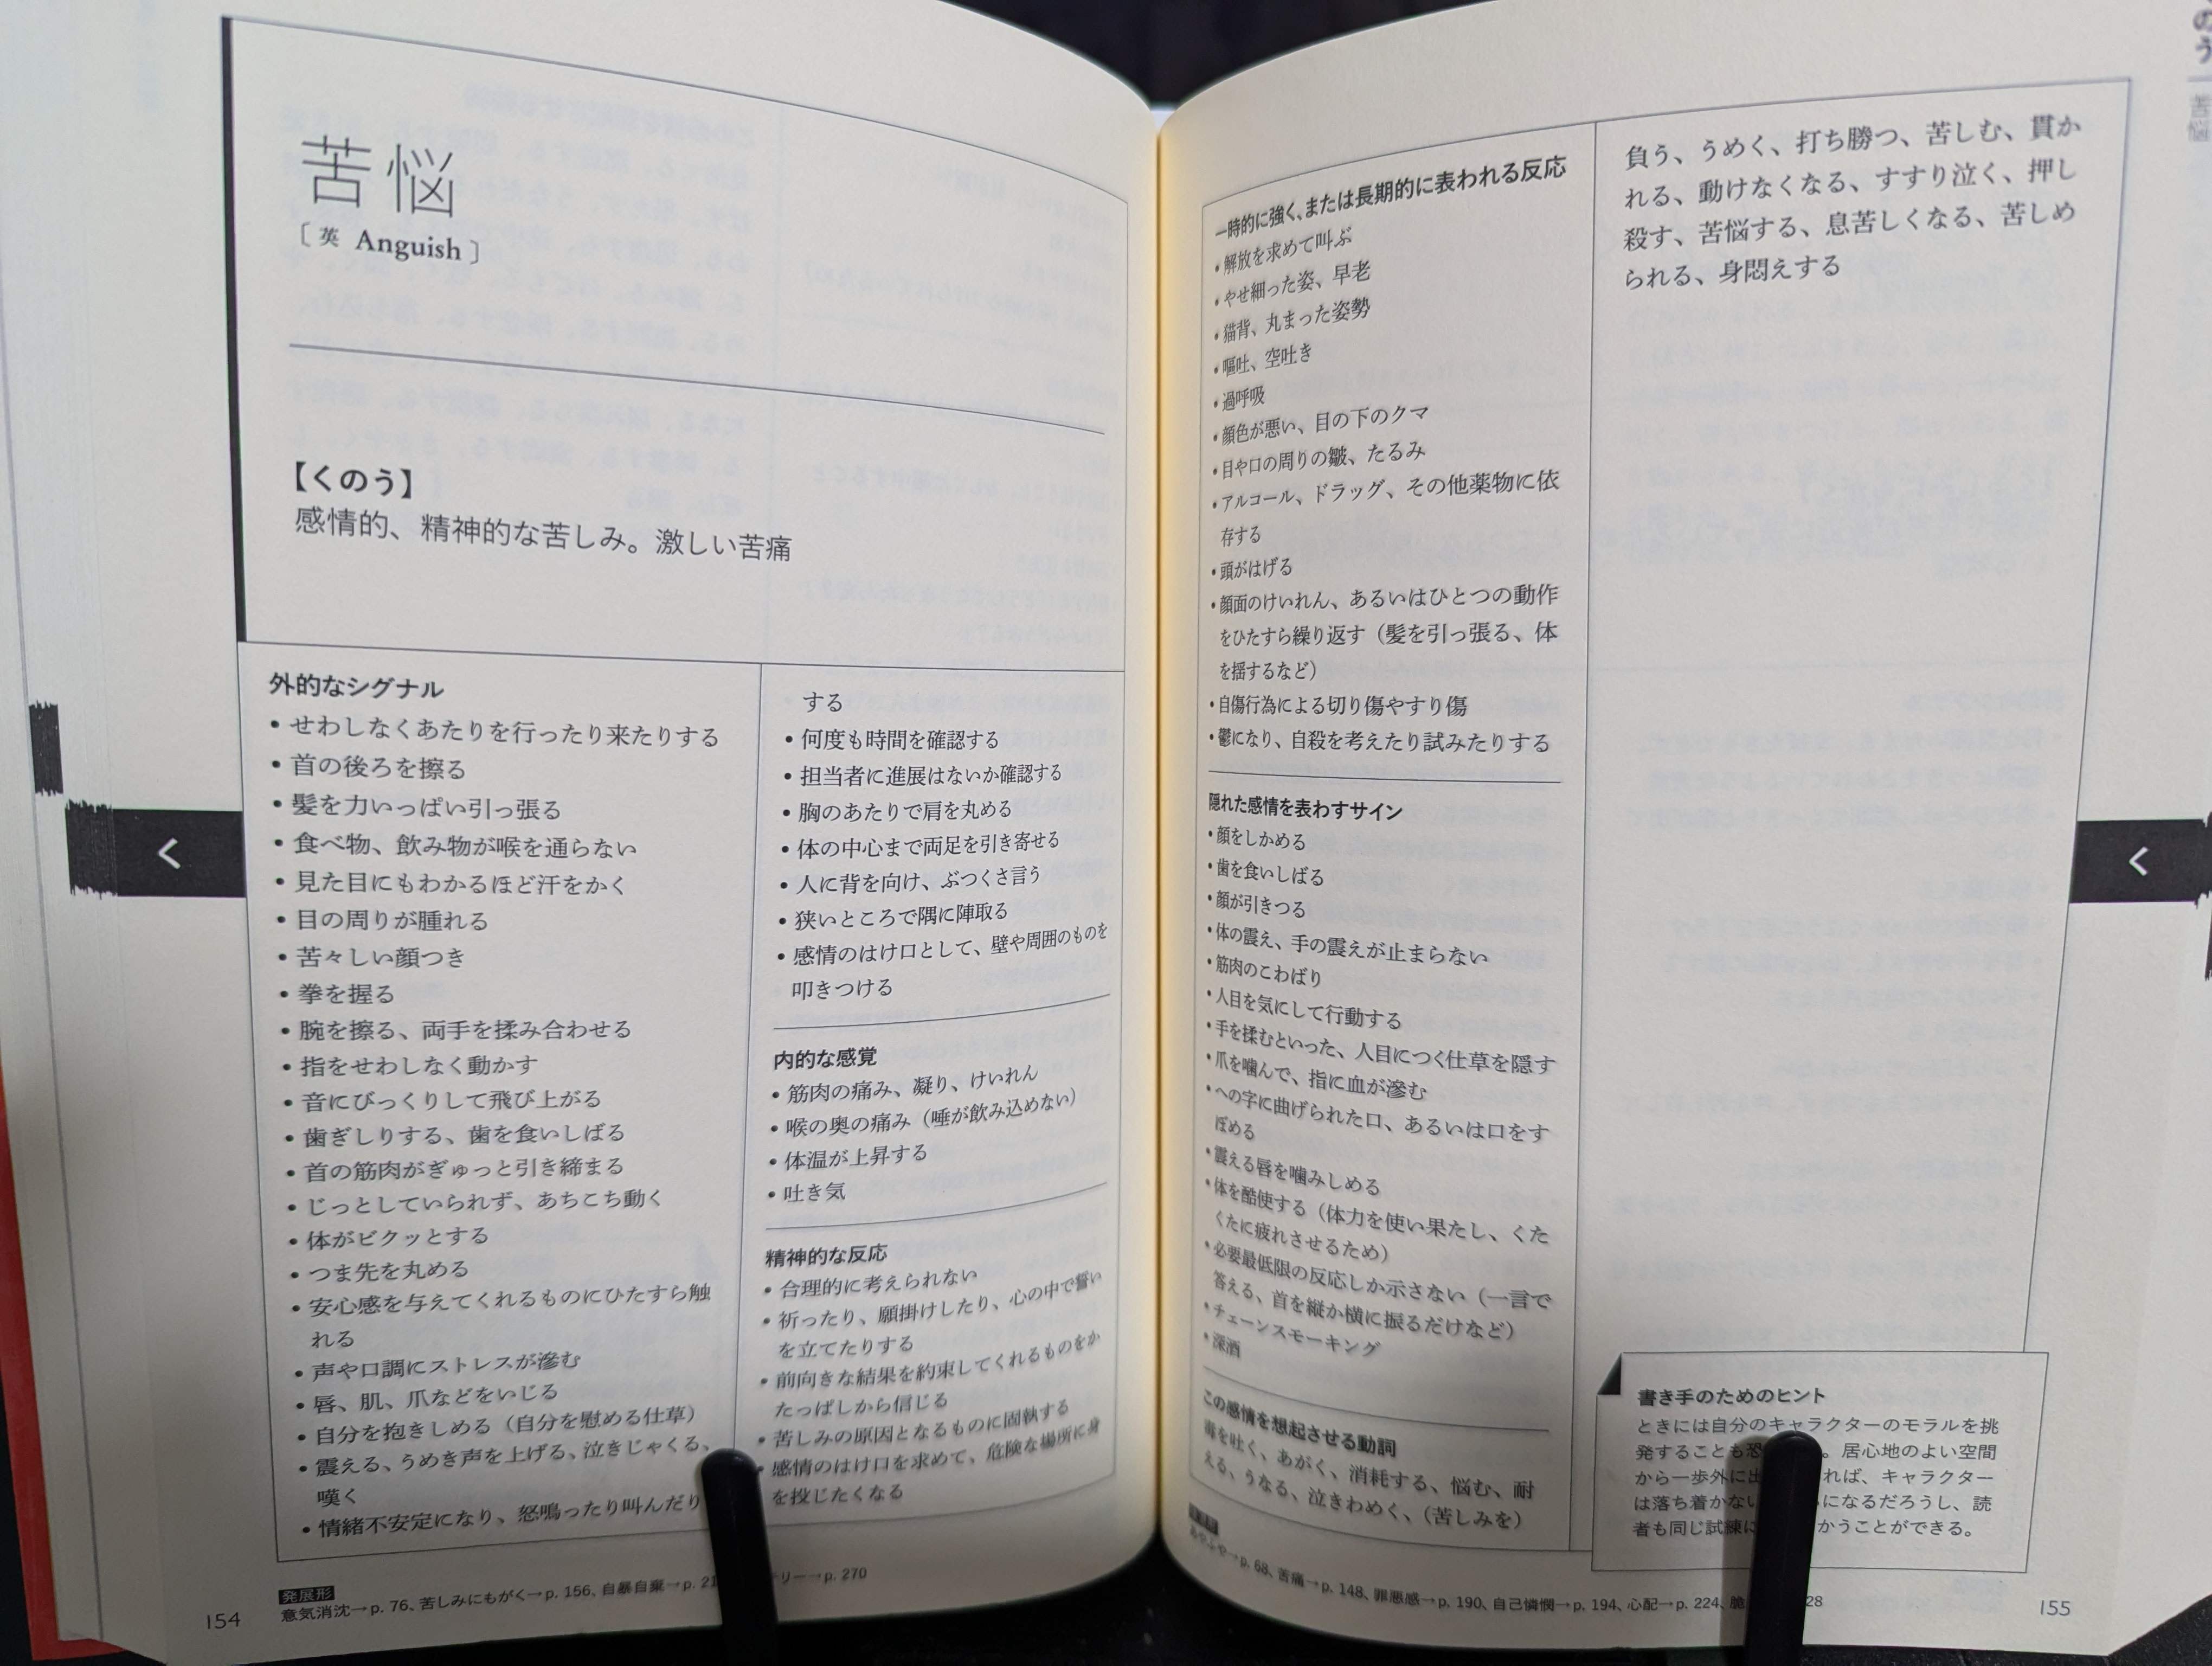 苦悩
〔英 Anguish〕
【くのう】
感情的、精神的な苦しみ。激しい苦痛
外的なシグナル
• せわしなくあたりを行ったり来たりする
• 首の後ろを擦る
• 髪を力いっぱい引っ張る
• 食べ物、飲み物が喉を通らない
• 見た目にもわかるほど汗をかく
• 目の周りが腫れる
• 苦々しい顔つき
• 拳を握る
• 腕を擦る、両手を揉み合わせる
• 指をせわしなく動かす
• 音にびっくりして飛び上がる
• 歯ぎしりする、歯を食いしばる
• 首の筋肉がぎゅっと引き締まる
• じっとしていられず、あちこち動く
• 体がビクッとする
• つま先を丸める
• 安心感を与えてくれるものにひたすら触
れる
• 声や口調にストレスが滲む
• 唇、肌、爪などをいじる
• 自分を抱きしめる（自分を慰める仕草）
• 震える、うめき声を上げる、泣きじゃくる、
嘆く
• 情緒不安定になり、怒鳴ったり叫んだり
する
• 何度も時間を確認する
• 担当者に進展はないか確認する
• 胸のあたりで肩を丸める
• 体の中心まで両足を引き寄せる
• 人に背を向け、ぶつくさ言う
• 狭いところで隅に陣取る
• 感情のはけ口として、壁や周囲のものを
叩きつける
内的な感覚
• 筋肉の痛み、凝り、けいれん
• 喉の奥の痛み（唾が飲み込めない）
• 体温が上昇する
• 吐き気
精神的な反応
• 合理的に考えられない
• 祈ったり、願掛けしたり、心の中で誓い
を立てたりする
• 前向きな結果を約束してくれるものをか
たっぱしから信じる
• 苦しみの原因となるものに固執する
• 感情のはけ口を求めて、危険な場所に身
を投じたくなる
発展形
意気消沈→p. 76、苦しみにもがく→p. 156、自暴自棄→p. 21 テリー→p. 270
154
く
一時的に強く、または長期的に表われる反応
• 解放を求めて叫ぶ
• やせ細った姿、早老
• 猫背、丸まった姿勢
• 嘔吐、空吐き
• 過呼吸
• 顔色が悪い、目の下のクマ
• 目や口の周りの皺、たるみ
• アルコール、ドラッグ、その他薬物に依
存する
• 頭がはげる
• 顔面のけいれん、あるいはひとつの動作
をひたすら繰り返す（髪を引っ張る、体
を揺するなど）
• 自傷行為による切り傷やすり傷
• 鬱になり、自殺を考えたり試みたりする
隠れた感情を表わすサイン
• 顔をしかめる
• 歯を食いしばる
• 顔が引きつる
• 体の震え、手の震えが止まらない
• 筋肉のこわばり
• 人目を気にして行動する
• 手を揉むといった、人目につく仕草を隠す
• 爪を噛んで、指に血が滲む
• への字に曲げられた口、あるいは口をす
ぼめる
• 震える唇を噛みしめる
• 体を酷使する（体力を使い果たし、くた
くたに疲れさせるため）
• 必要最低限の反応しか示さない（一言で
答える、首を縦か横に振るだけなど）
• チェーンスモーキング
• 深酒
この感情を想起させる動詞
毒を吐く、あがく、消耗する、悩む、耐
える、うなる、泣きわめく、（苦しみを）
負う、うめく、打ち勝つ、苦しむ、貫か
れる、動けなくなる、すすり泣く、押し
殺す、苦悩する、息苦しくなる、苦しめ
られる、身悶えする
書き手のためのヒント
ときには自分のキャラクターのモラルを挑
発することも恐 。居心地のよい空間
から一歩外に出 れば、キャラクター
は落ち着かない になるだろうし、読
者も同じ試練に かうことができる。
あやふや→p. 68、苦痛→p. 148、罪悪感→p. 190、自己憐憫→p. 194、心配→p. 224、脆 28
155
のう
苦悩
く